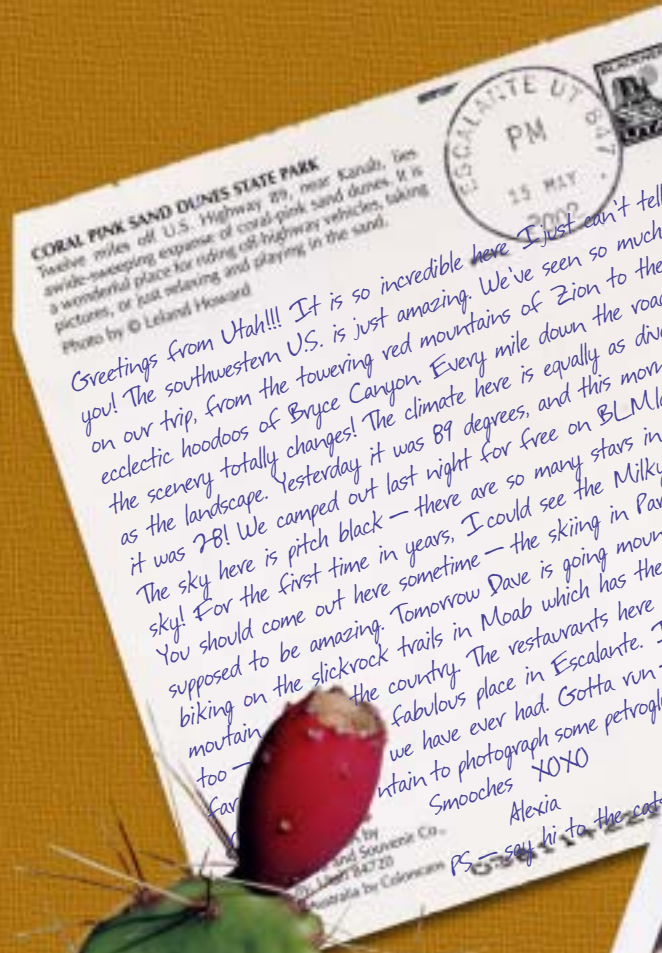 ESCALANTE UT 847
PM
15 MAY
2002
CORAL PINK SAND DUNES STATE PARK
Twelve miles off U.S. Highway 89, near Kanab, lies
awide-sweeping expanse of coral-pink sand dunes. It is
a wonderful place for riding off-highway vehicles, taking
pictures, or just relaxing and playing in the sand.
Photo by © Leland Howard
Greetings from Utah!!! It is so incredible here I just can't tell
you! The southwestern U.S. is just amazing. We've seen so much
on our trip, from the towering red mountains of Zion to the
ecclectic hoodoos of Bryce Canyon. Every mile down the road
the scenery totally changes! The climate here is equally as dive
as the landscape. Yesterday it was 89 degrees, and this morn
it was 28! We camped out last night for free on BLM.la
The sky here is pitch black — there are so many stars in
sky! For the first time in years, I could see the Milky
You should come out here sometime — the skiing in Par
supposed to be amazing. Tomorrow Dave is going moun
biking on the slickrock trails in Moab which has the
moutain the country. The restaurants here
too — fabulous place in Escalante. I
far we have ever had. Gotta run-
ntain to photograph some petrogl
Smooches XOXO
Alexia
PS — say hi to the cats
by
and Souvenir Co.,
Utah 84720
ustralia by Colorscans